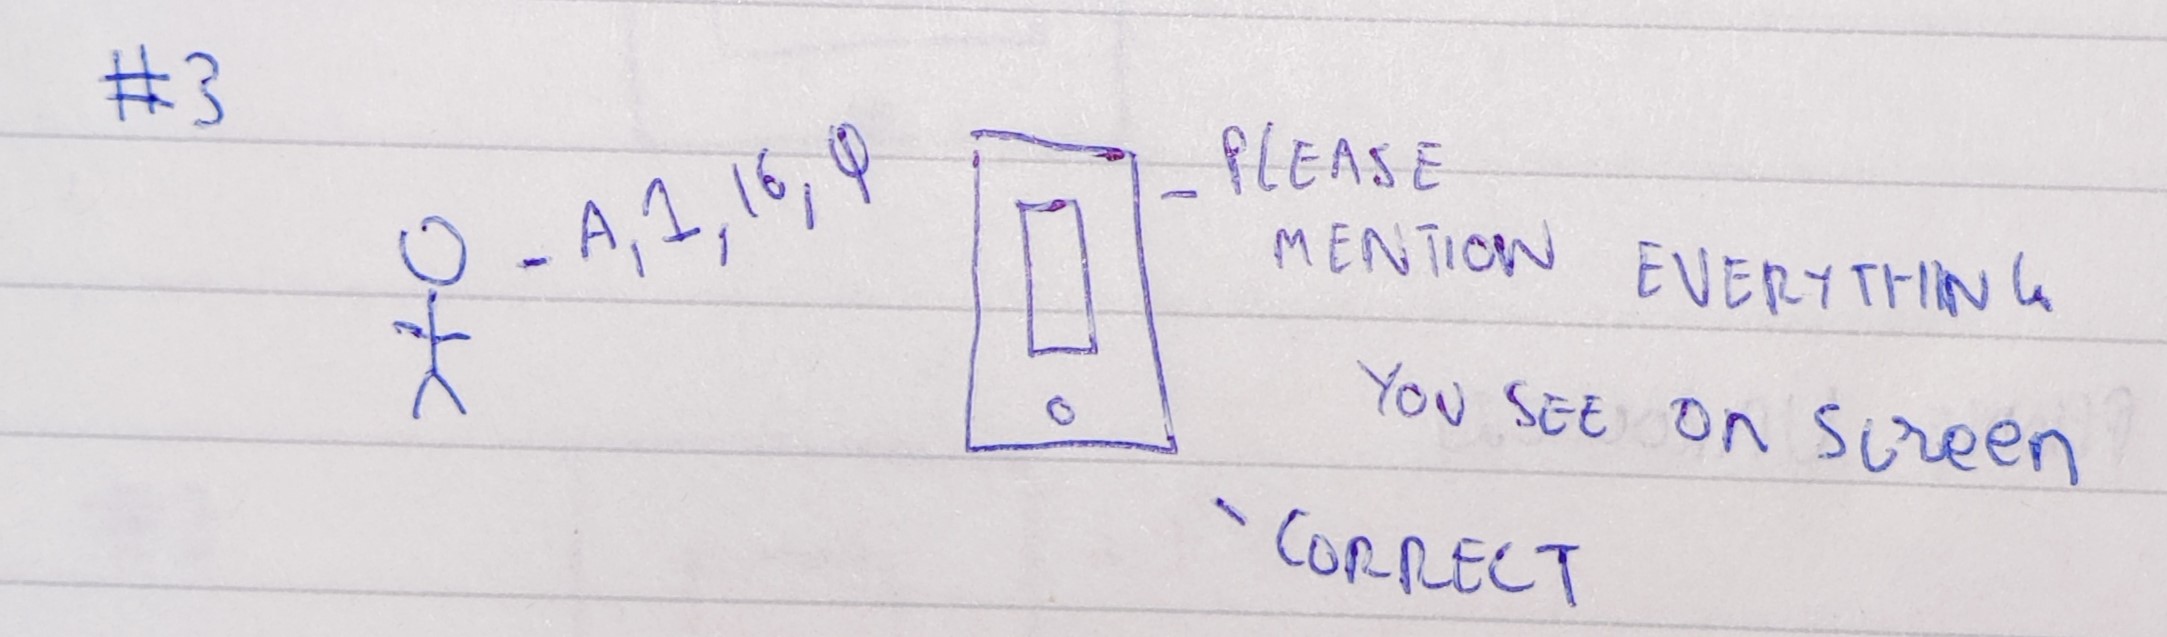 #3
- A, 1, 16, φ
- PLEASE
MENTION EVERYTHING
YOU SEE ON Screen
- CORRECT